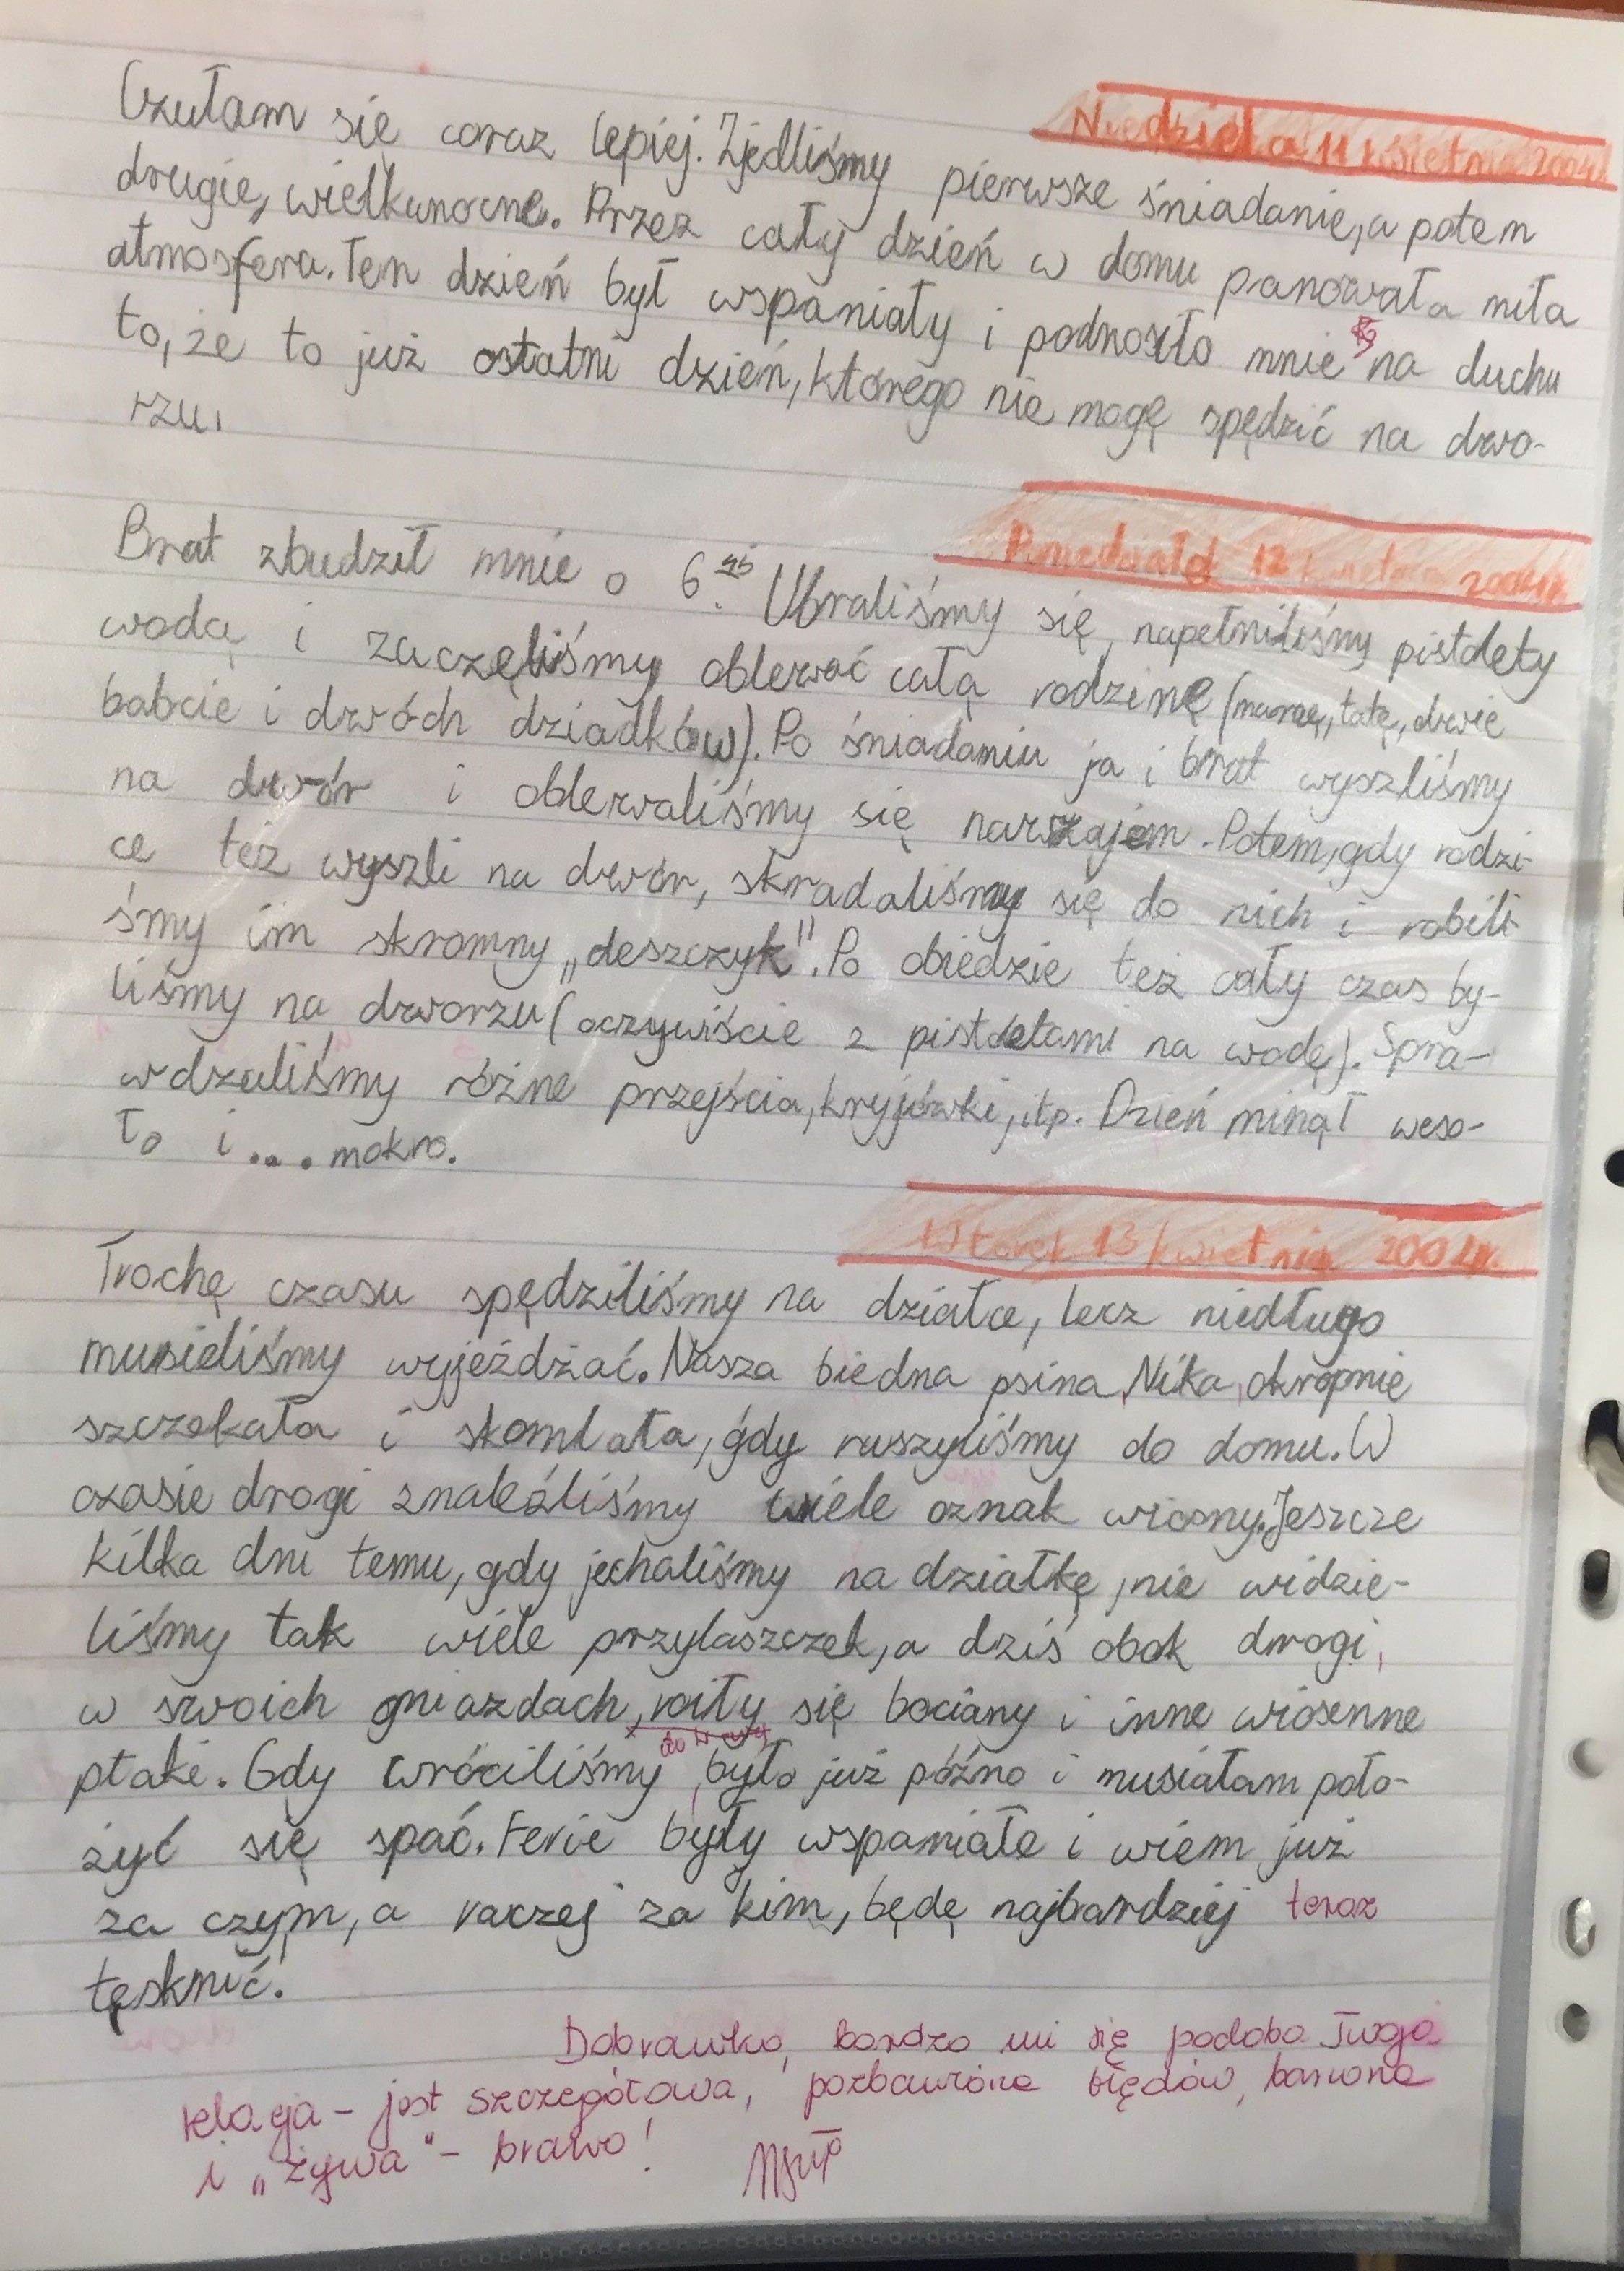 Niedziela 11 kwietnia 2004r.
Czułam się coraz lepiej. Zjedliśmy pierwsze śniadanie, a potem
drugie, wielkanocne. Przez cały dzień w domu panowała miła
atmosfera. Ten dzień był wspaniały i podnosiło mnie na duchu
to, że to już ostatni dzień, którego nie mogę spędzić na dwo-
rzu.
Poniedziałek 12 kwietnia 2004r.
Brat zbudził mnie o 6. Ubraliśmy się, napełniliśmy pistolety
wodą i zaczęliśmy oblewać całą rodzinę (mamę, tatę, dwie
babcie i dwóch dziadków). Po śniadaniu ja i brat wyszliśmy
na dwór i oblewaliśmy się nawzajem. Potem, gdy rodzi-
ce też wyszli na dwór, skradaliśmy się do nich i robili-
śmy im skromny „deszczyk". Po obiedzie też cały czas by-
liśmy na dworzu (oczywiście z pistoletami na wodę). Spra-
wdzaliśmy różne przejścia, kryjówki, itp. Dzień minął weso-
ło i .... mokro.
Wtorek 13 kwietnia 2004r.
Trochę czasu spędziliśmy na działce, lecz niedługo
musieliśmy wyjeżdżać. Nasza biedna psina, Nika, okropnie
szczekała i skomlała, gdy ruszyliśmy do domu. W
czasie drogi znaleźliśmy wiele oznak wiosny. Jeszcze
kilka dni temu, gdy jechaliśmy na działkę, nie widzie-
liśmy tak wiele przylaszczek, a dziś obok drogi,
w swoich gniazdach, roiły się bociany i inne wiosenne
ptaki. Gdy wróciliśmy, było już późno i musiałam poło-
żyć się spać. Ferie były wspaniałe i wiem już
za czym, a raczej za kim, będę najbardziej teraz
tęsknić.
Dobrawko, bardzo mi się podoba Twoja
relacja - jest szczegółowa, pozbawiona błędów, barwna
i „żywa" - brawo!